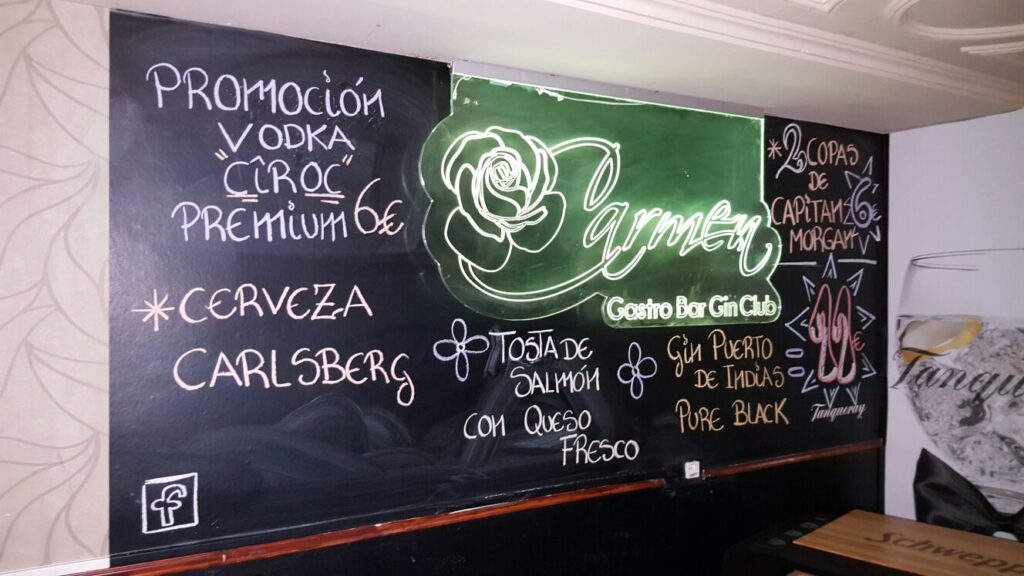 PROMOCIÓN
VODKA
"CÎROC"
PREMIUM 6€
*CERVEZA
CARLSBERG
f
Carmen
Gastro Bar Gin Club
TOSTA DE
SALMÓN
CON QUESO
FRESCO
GIN PUERTO
DE INDIAS
PURE BLACK
* 2 COPAS
DE
CAPITAN 6€
MORGAN
€
Tanqueray
Tanqu
Schwepp